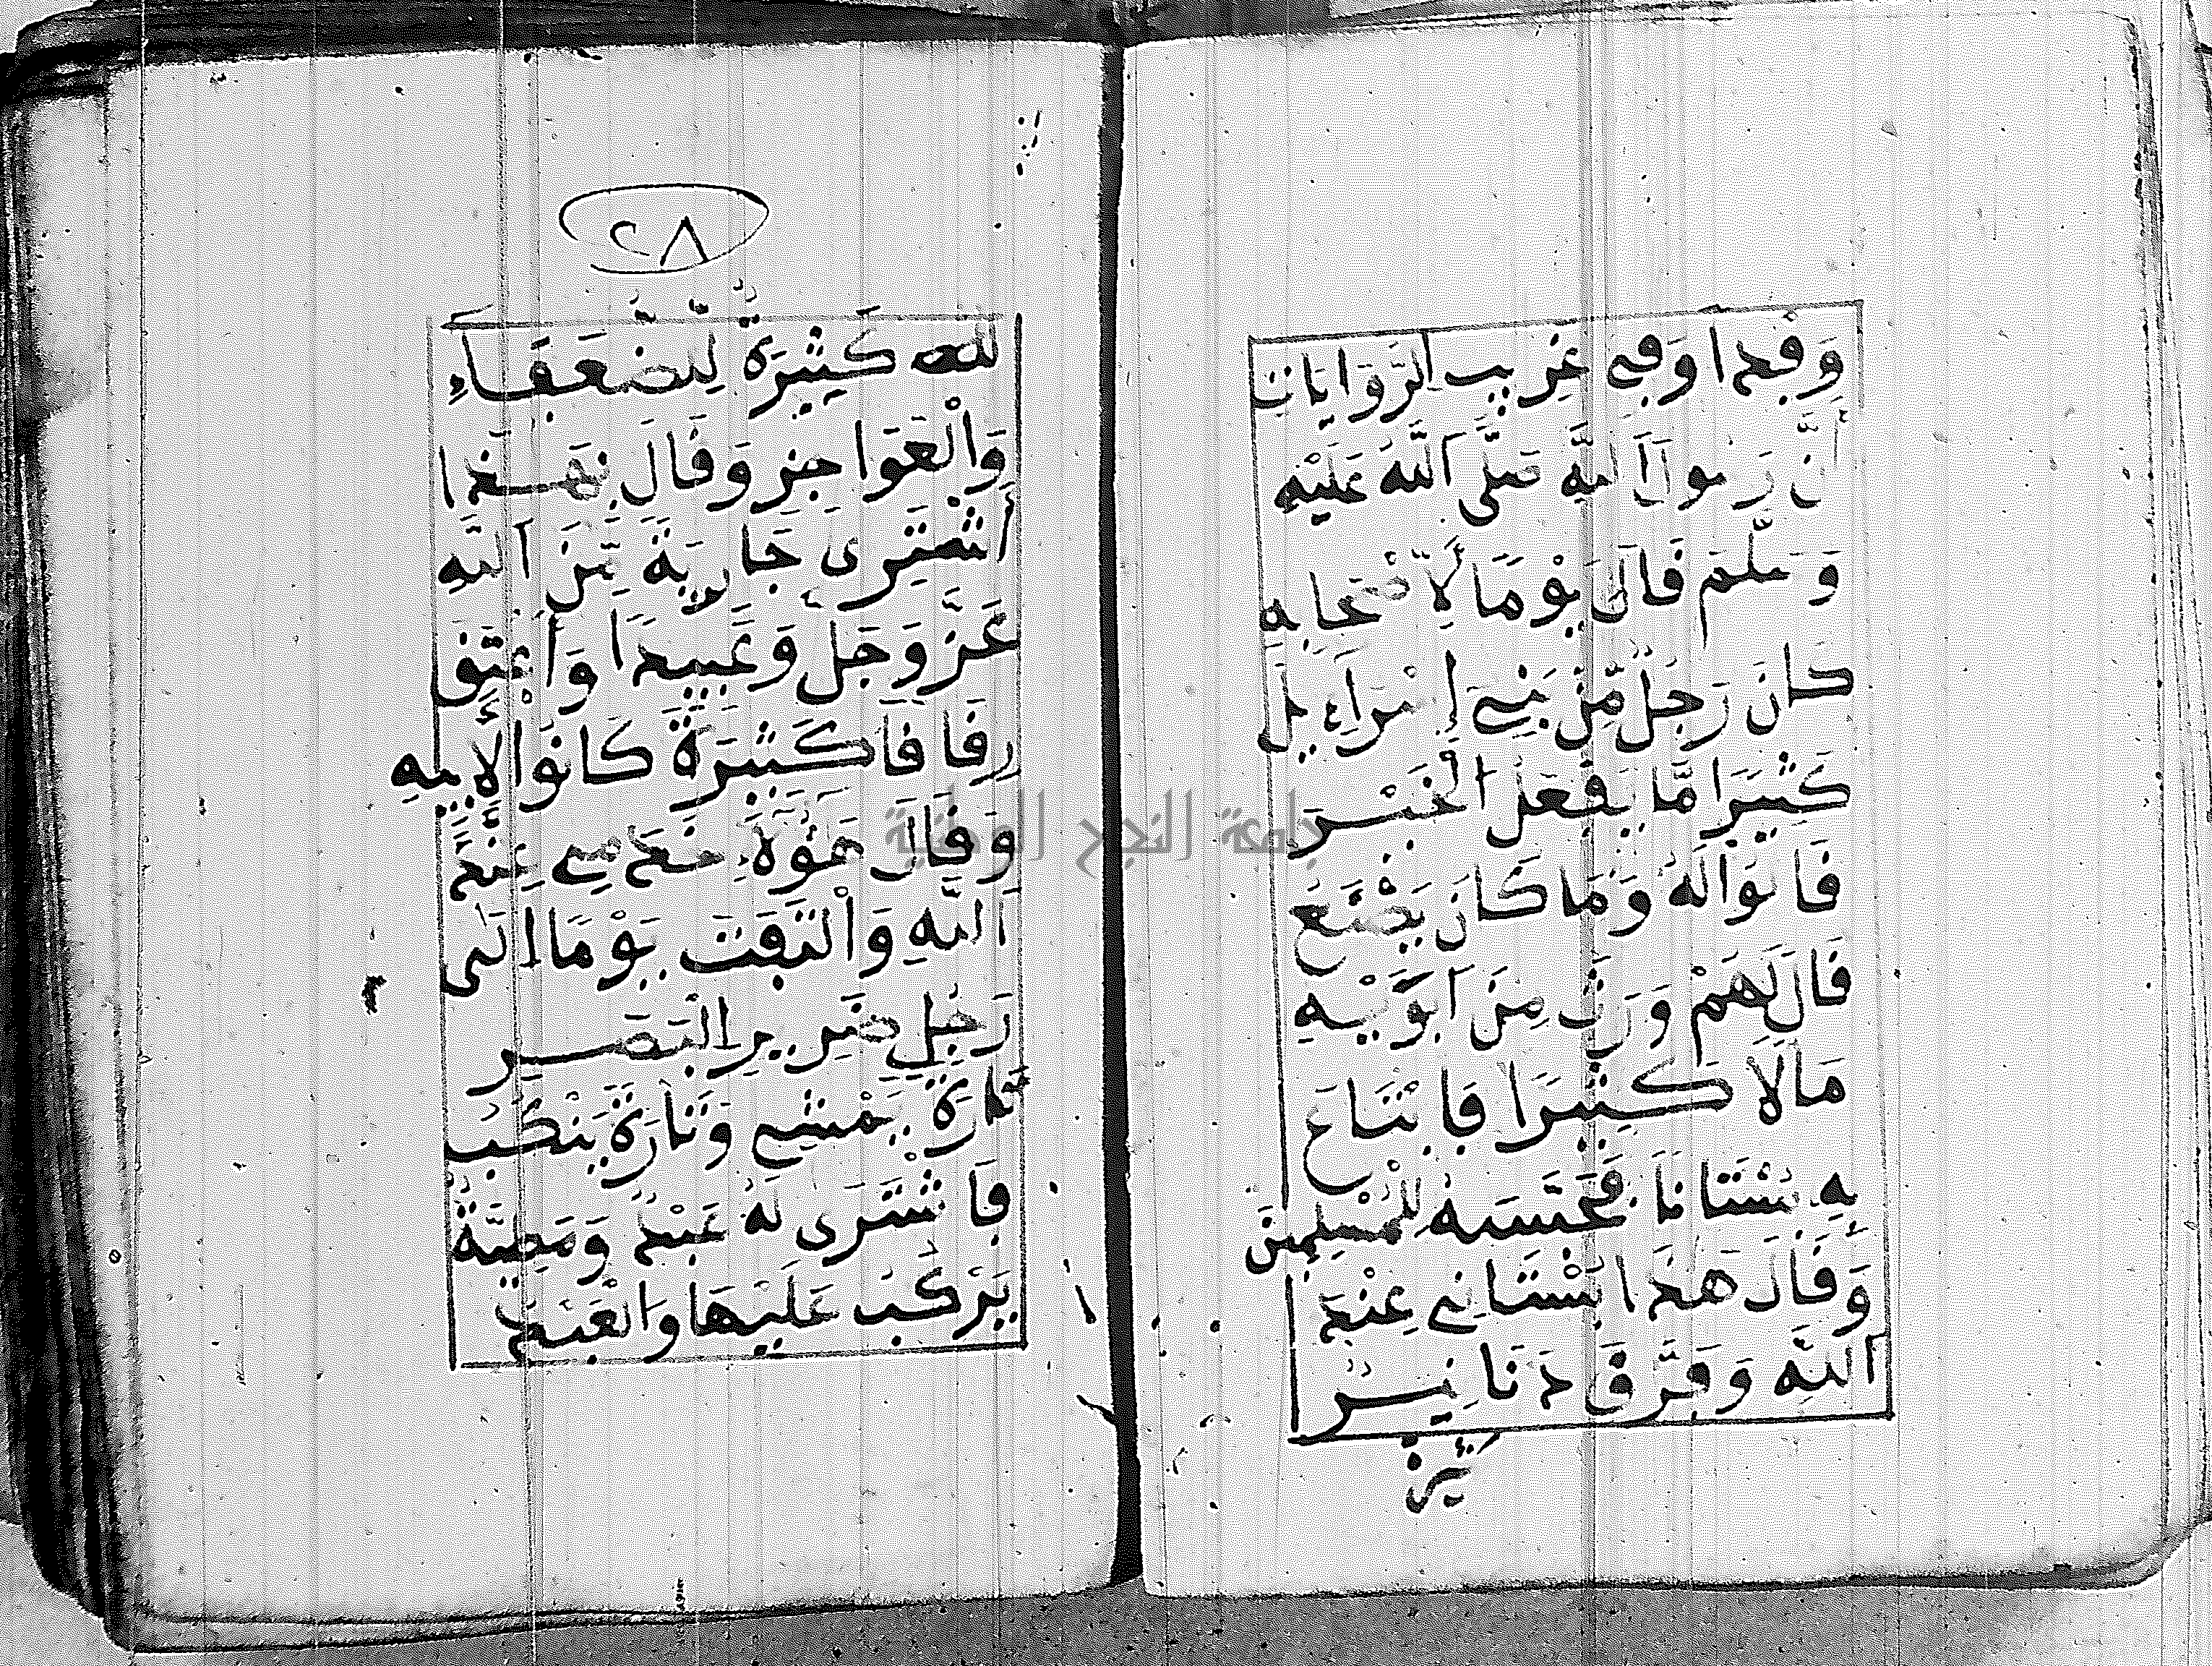 وَفَدَا وَفِي غَرِيبِ الرَّوَايَاتِ
أَنَّ رَسُولَ اللَّهِ صَلَّى اللَّهُ عَلَيْهِ
وَسَلَّمَ قَالَ يَوْمًا لِأَصْحَابِهِ
كَانَ رَجُلٌ مِّنْ بَنِي إِسْرَاءِيلَ
كَثِيرًا مَّا يَفْعَلُ الْخَيْرَ
قَالُوا لَهُ وَمَا كَانَ يَصْنَعُ
قَالَ لَهُمْ وَرِثَ مِنْ أَبَوَيْهِ
مَالًا كَثِيرًا فَابْتَاعَ
بِهِ بُسْتَانًا فَحَبَسَهُ لِلْمُسْلِمِينَ
وَقَالَ هَذَا بُسْتَانِي عِنْدَ
اللَّهِ وَفَرَّقَ دَنَانِيرَ
كَثِيرَةً
٢٨
لله كَثِيرَةً لِلضُّعَفَاءِ
وَالْعَوَاجِزِ وَقَالَ بِهَذَا
أَشْتَرِي جَارِيَةً مِّنَ اللَّهِ
عَزَّ وَجَلَّ وَعَبِيدًا وَأَعْتَقَ
رِقَابًا كَثِيرَةً كَانُوا لِأَبِيهِ
وَقَالَ هَؤُلَاءِ خَدَمِي عِنْدَ
اللَّهِ وَالْتَفَتَ يَوْمًا إِلَى
رَجُلٍ ضَرِيرِ الْبَصَرِ
تَارَةً يَمْشِي وَتَارَةً يَنْكَبُّ
فَاشْتَرَى لَهُ عَبْدًا وَمَطِيَّةً
يَرْكَبُ عَلَيْهَا وَالْعَبْدُ
جامعة النجاح الوطنية